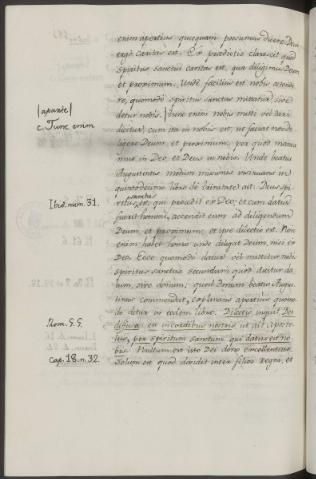 enim apertius quicquam possumus dicere Deus
ergo Caritas est. Ex prædictis claret, quod
Spiritus sanctus caritas est, qua diligimus Deum
et proximum. Unde facilius est nobis ostende-
re, quomodo spiritus sanctus mittatur, sive
detur nobis. Tunc enim nobis mitti vel dari
dicitur, cum ita in nobis est, ut faciat nos di-
ligere Deum, et proximum, per quod manea-
mus in Deo, et Deus in nobis. Unde beatus
Augustinus modum missionis insinuans in
quintodecimo libro de trinitate ait. Deus spi-
ritus sanctus, qui procedit ex Deo, et cum datus
fuerit homini, accendit eum ad diligendum
Deum, et proximum, et ipse dilectio est. Non
enim habet homo unde diligat Deum, nisi ex
Deo. Ecce quomodo datur vel mittitur nobis
spiritus sanctus secundum quod dicitur da-
tum, sive donum, quod donum beatus Augus-
tinus commendat, explanans apertius quomo-
do detur in eodem libro. Dilectio inquit Dei
diffusa est in cordibus nostris ut ait aposto-
lus, per spiritum sanctum qui datus est no-
bis. Nullum est isto Dei dono excellentius.
Solum est quod dividit inter filios regni, et
(aparte)
c. Tunc enim
Ibid. num. 31.
Rom. 5. 5.
Cap. 18. n. 32.